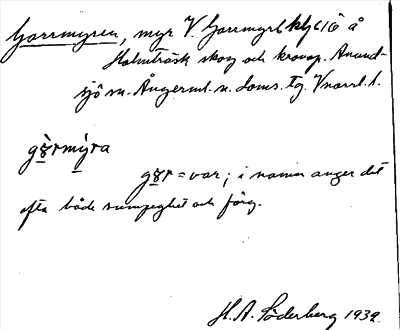 Gorrmyren, myr V. Gorrmyrbkhl i Ö å
Holmträsk skog och kronop. Anund-
sjö sn. Ångerml. n. doms. tg. V norrl. l.
gö̀rmy̆ra
gör = var; i namn anger det
ofta både sumpighet och färg.
H. A. Söderberg 1932